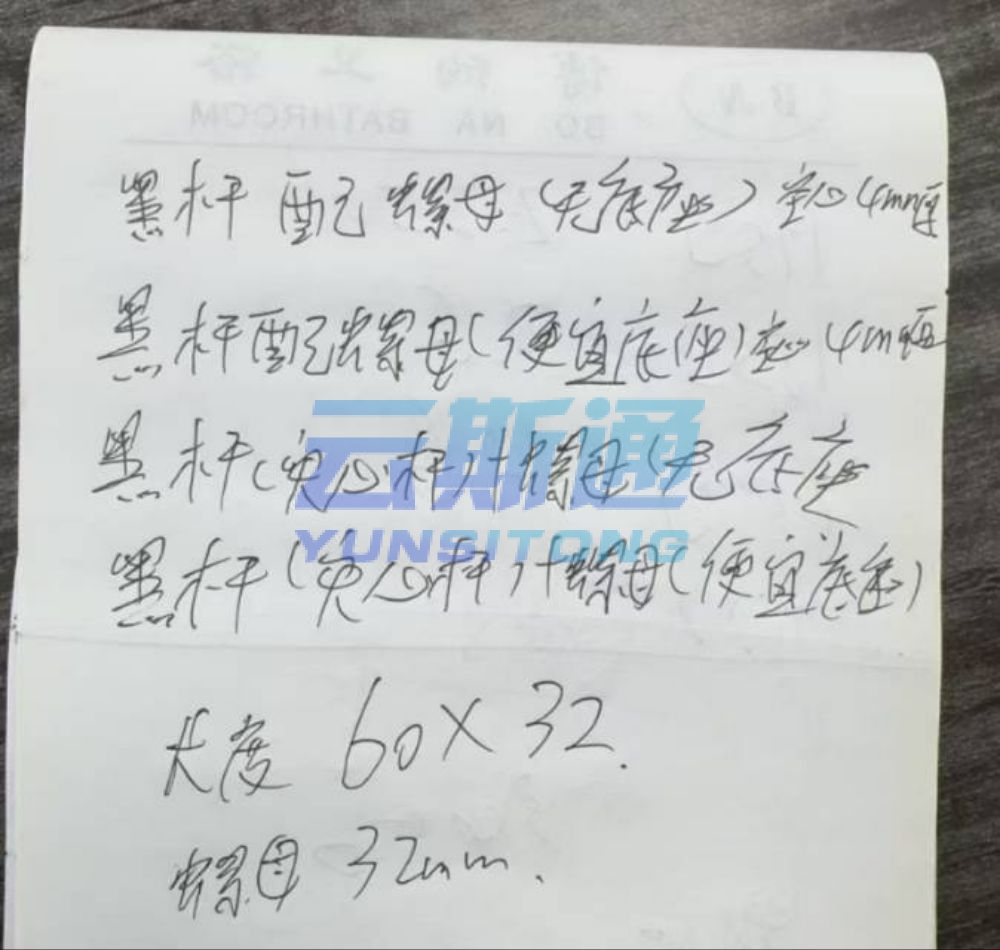 黑杆配螺母(无底座)空心4mm厘
黑杆配螺母(便宜底座)空心4mm厘
黑杆(实心杆)+螺母(无底座
黑杆(实心杆)+螺母(便宜底座)
云斯通
YUNSITONG
长度 60X32.
螺母 32mm.